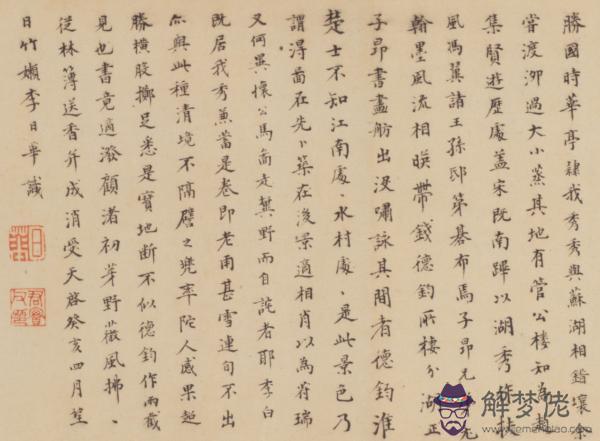 勝國時華亭隸我秀秀與蘇湖相錯壤余
嘗渡泖過大小蒸其地有管公樓知為趙
集賢遊歷處蓋宋既南蹕以湖秀作扶
風馮翼諸王孫邸第碁布焉子昂兄弟尤
翰墨風流相暎帶錢德鈞所棲分湖正
子昂書畫舫出沒嘯詠其間者德鈞淮
楚士不知江南處、水村處、是此景色乃
謂淂畵在先卜築在後景適相肖以為符瑞
又何異懷公馬畵走冀野而自詫者耶李白
既居我秀兼蓄是卷即老甫甚雪連旬不出
亦與此種清境不隔譬之兜率陀人感果超
勝橫股擲足悉是寶地断不似德鈞作兩截
見也書竟適潑顧渚初芽野薇風拂、
從林薄送香并成消受天啓癸亥四月望
日竹嬾李日華識
日華
解梦佬